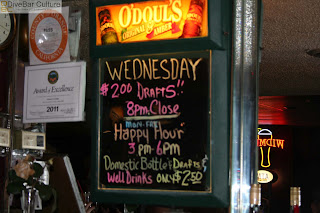 DiveBar Culture
O'DOUL'S
ORIGINAL & AMBER
Award of Excellence
2011
WEDNESDAY
$2.00 DRAFTS!!
8pm.Close
MON-FRI
Happy Hour
3pm-6pm
Domestic Bottle's, Drafts &
Well Drinks ONLY $2.50
WIDMER